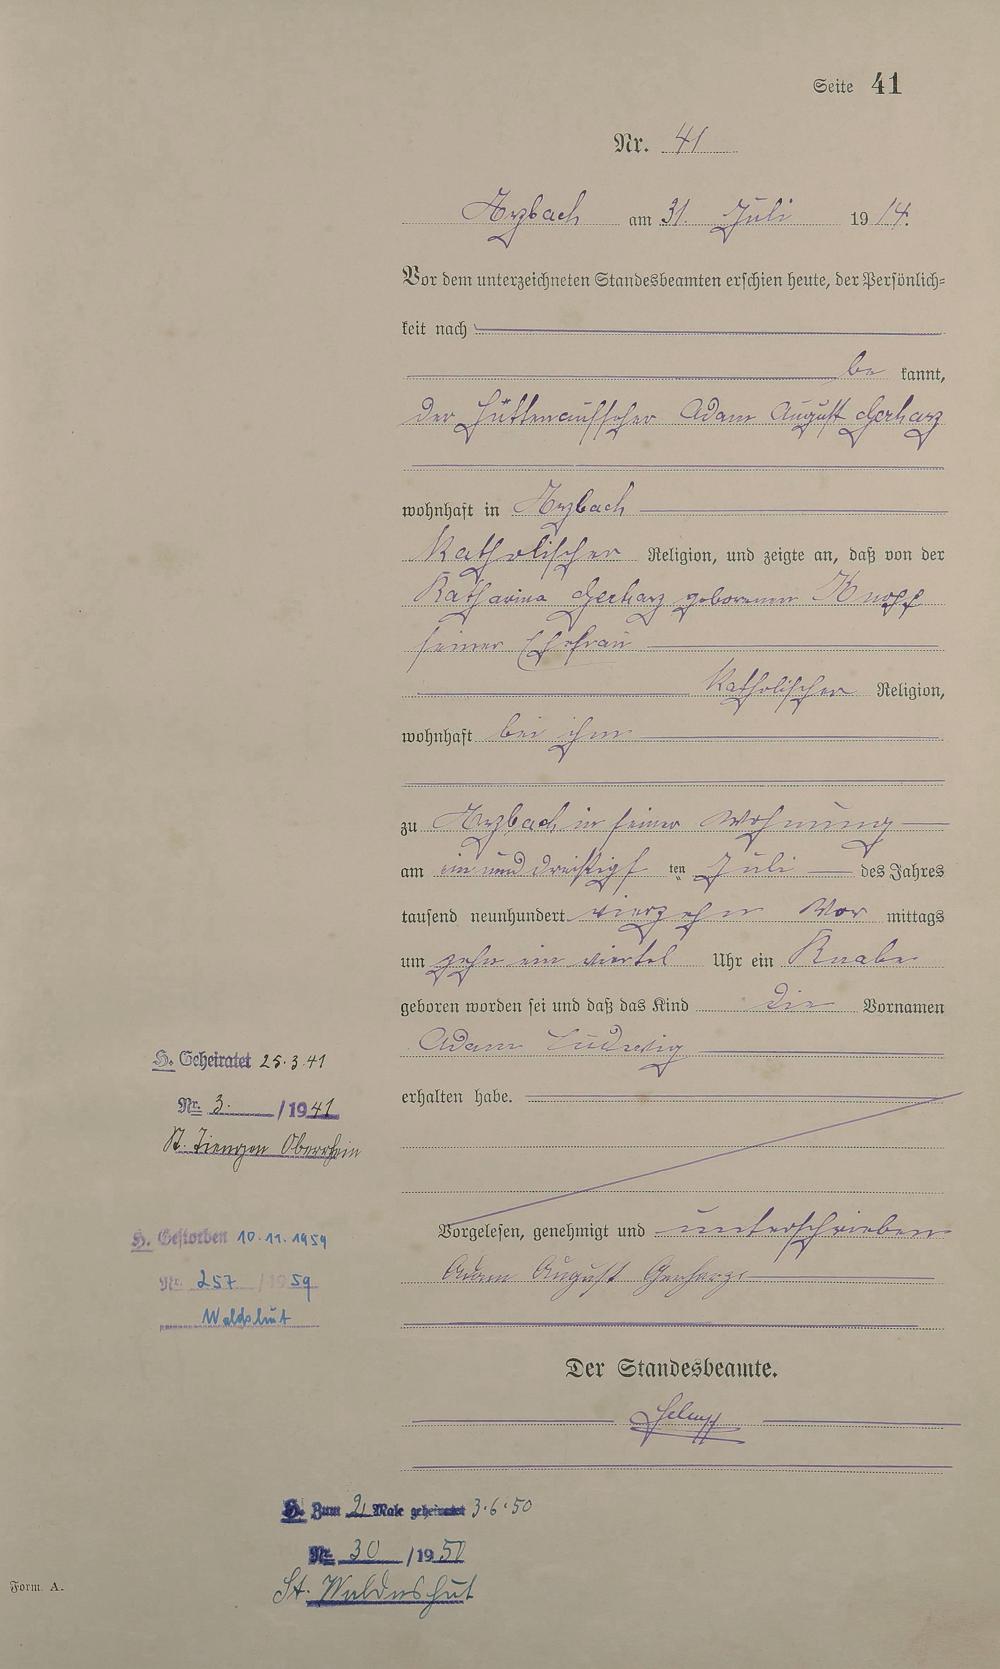 Seite 41
Nr. 41
Arzbach am 31. Juli 1914.
Vor dem unterzeichneten Standesbeamten erschien heute, der Persönlich=
keit nach
be kannt,
der Hüttenaufseher Adam August Gerharz
wohnhaft in Arzbach
katholischer Religion, und zeigte an, daß von der
Katharina Gerharz geborenen Knopp
seiner Ehefrau
katholischer Religion,
wohnhaft bei ihm
zu Arzbach in seiner Wohnung
am ein und dreißigsten Juli des Jahres
tausend neunhundert vierzehn Vor mittags
um zehn ein viertel Uhr ein Knabe
geboren worden sei und daß das Kind die Vornamen
Adam Ludwig
H. Geheiratet 25.3.41
erhalten habe.
Nr. 3. /1941
St. Tiengen Oberrhein
Vorgelesen, genehmigt und unterschrieben
H. Gestorben 10.11.1959
Adam August Gerharz
Nr. 257 /1959
Waldshut
Der Standesbeamte.
H. Zum 2. Male geheiratet 3.6.50
Nr. 30 /1950
St. Waldshut
Form. A.